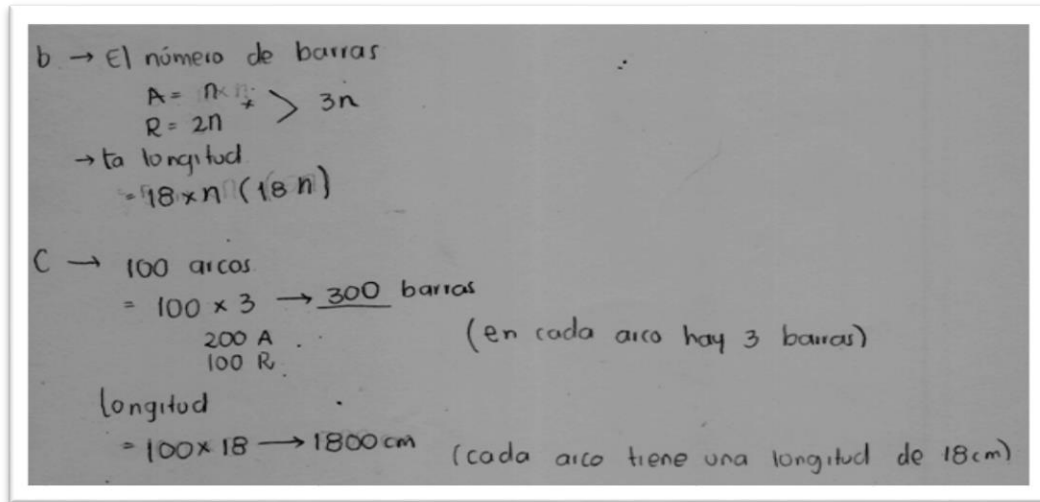 b → El número de barras
A = n
R = 2n > 3n
→ la longitud
= 18 × n (18 n)
C → 100 arcos
= 100 × 3 → 300 barras
200 A (en cada arco hay 3 barras)
100 R
longitud
= 100 × 18 → 1800 cm (cada arco tiene una longitud de 18cm)